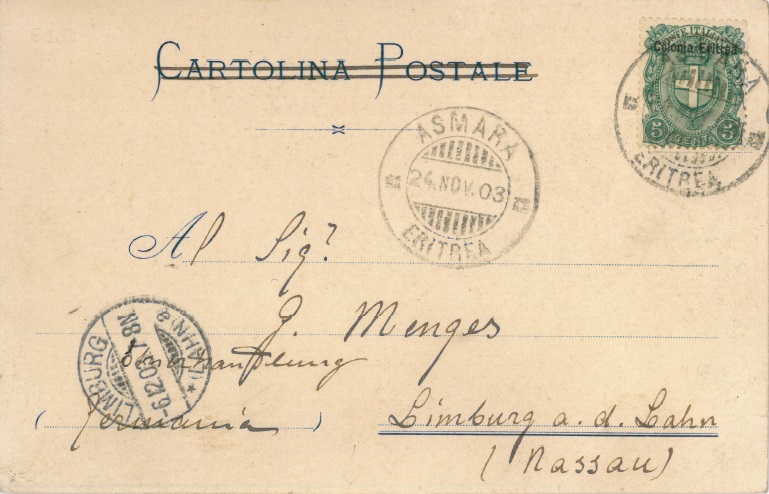 CARTOLINA POSTALE
POSTE ITALIANE
Colonia Eritrea
5 5
ASMARA
ERITREA
ASMARA
24.NOV.03
ERITREA
Al Sigr
J. Menges
LIMBURG (LAHN) a
-6.12.03.7-8N.
(Germania)
Limburg a. d. Lahn
(Nassau)